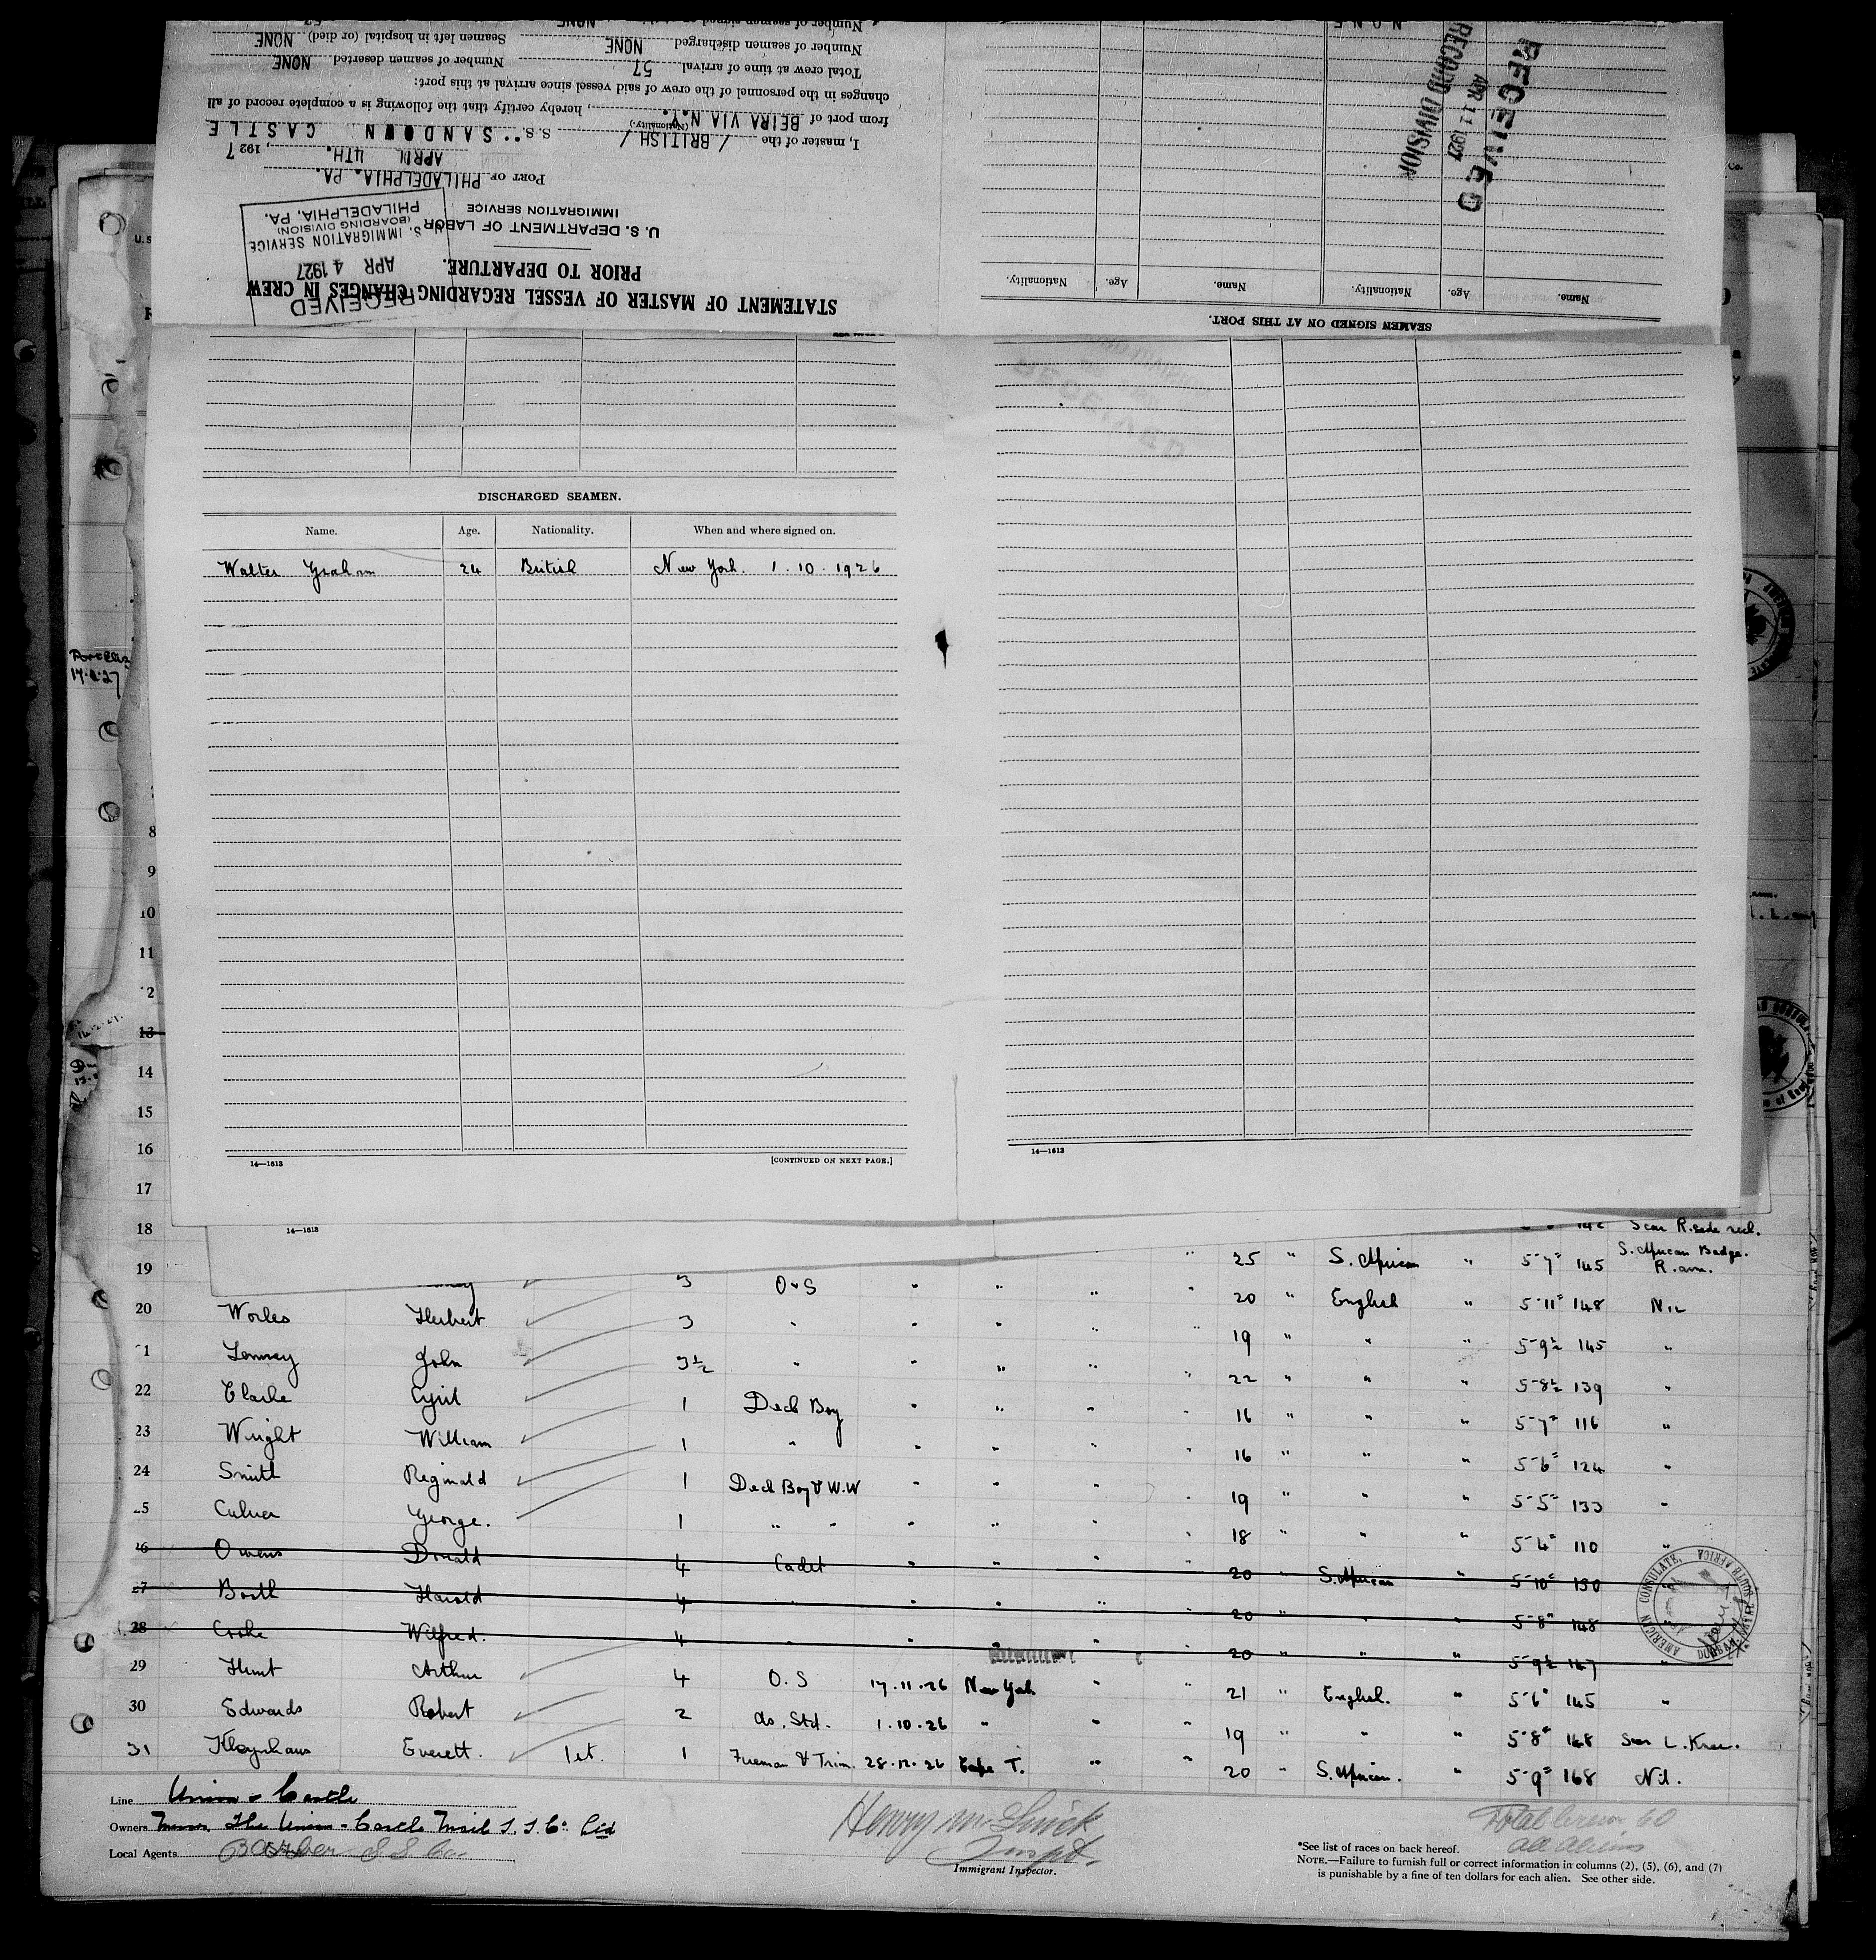 Number of seamen signed on at this NONE
Seamen left in hospital (or died) NONE
Number of seamen discharged NONE
Number of seamen deserted NONE
Total crew at time of arrival 57
changes in the personnel of the crew of said vessel since arrival at this port:
from port of BEIRA VIA N.Y. , hereby certify that the following is a complete record of all
(Nationality.)
I, master of the /BRITISH/ S. S. SANDOWN CASTLE
APRIL 4TH. , 1927
PORT OF PHILADELPHIA. PA.
IMMIGRATION SERVICE
U. S. DEPARTMENT OF LABOR
PRIOR TO DEPARTURE.
STATEMENT OF MASTER OF VESSEL REGARDING CHANGES IN CREW
RECEIVED
APR 4 1927
U. S. IMMIGRATION SERVICE
(BOARDING DIVISION)
PHILADELPHIA, PA.
NONE
RECEIVED
APR 11 1927
RECORD DIVISION
Name. Age. Nationality. Name. Age. Nationality.
SEAMEN SIGNED ON AT THIS PORT.
DISCHARGED SEAMEN.
Name. Age. Nationality. When and where signed on.
Walter Graham 24 British New York. 1. 10. 1926
8
9
10
11
12
13
14
15
16
14—1613 [CONTINUED ON NEXT PAGE.] 14—1613
17
18 14—1613 142 Scar R. side neck.
19 3 O.S " " " " 25 " S. African " 5-7" 145 S. African Badge. R. arm.
20 Worles Herbert 3 " " " " " 20 " English " 5-11" 148 Nil
21 John 3½ " " " " " 19 " " " 5-9½ 145 "
22 Clarke Cyril 1 Deck Boy " " " " 22 " " " 5-8½ 139 "
23 Wright William 1 " " " " " 16 " " " 5-7" 116 "
24 Smith Reginald 1 Deck Boy & W.W " " " " 16 " " " 5-6" 124 "
25 Culver George. 1 " " " " " " 19 " " " 5-5" 133 "
18 " " " 5-4" 110 "
26 Owens Donald 4 Cadet " " " " 20 S. African " 5-10" 150
27 Booth Harold 4 " " " " " 20 " " " 5-8" 148
28 Cooke Wilfred. 4 " " " " 20 " " " 5-9½ 147 "
29 Hunt Arthur 4 O.S 17.11.26 New York " " 21 " English. " 5-6" 145 "
30 Edwards Robert 2 As. Std. 1.10.26 " " " 19 " " " 5-8" 148 Scar L. Knee.
31 Kleynhans Everett. 1st. 1 Fireman & Trim. 28.12.26 Cape T. " " 20 " S. African. " 5-9" 168 Nil.
AMERICAN CONSULATE, DURBAN, NATAL, SOUTH AFRICA
Line Union-Castle
Owners The Union-Castle Mail S.S. Co. Ltd
Local Agents Barber S S Co.
Immigrant Inspector.
Total Crew 60
All Aliens
*See list of races on back hereof.
NOTE.—Failure to furnish full or correct information in columns (2), (5), (6), and (7)
is punishable by a fine of ten dollars for each alien. See other side.